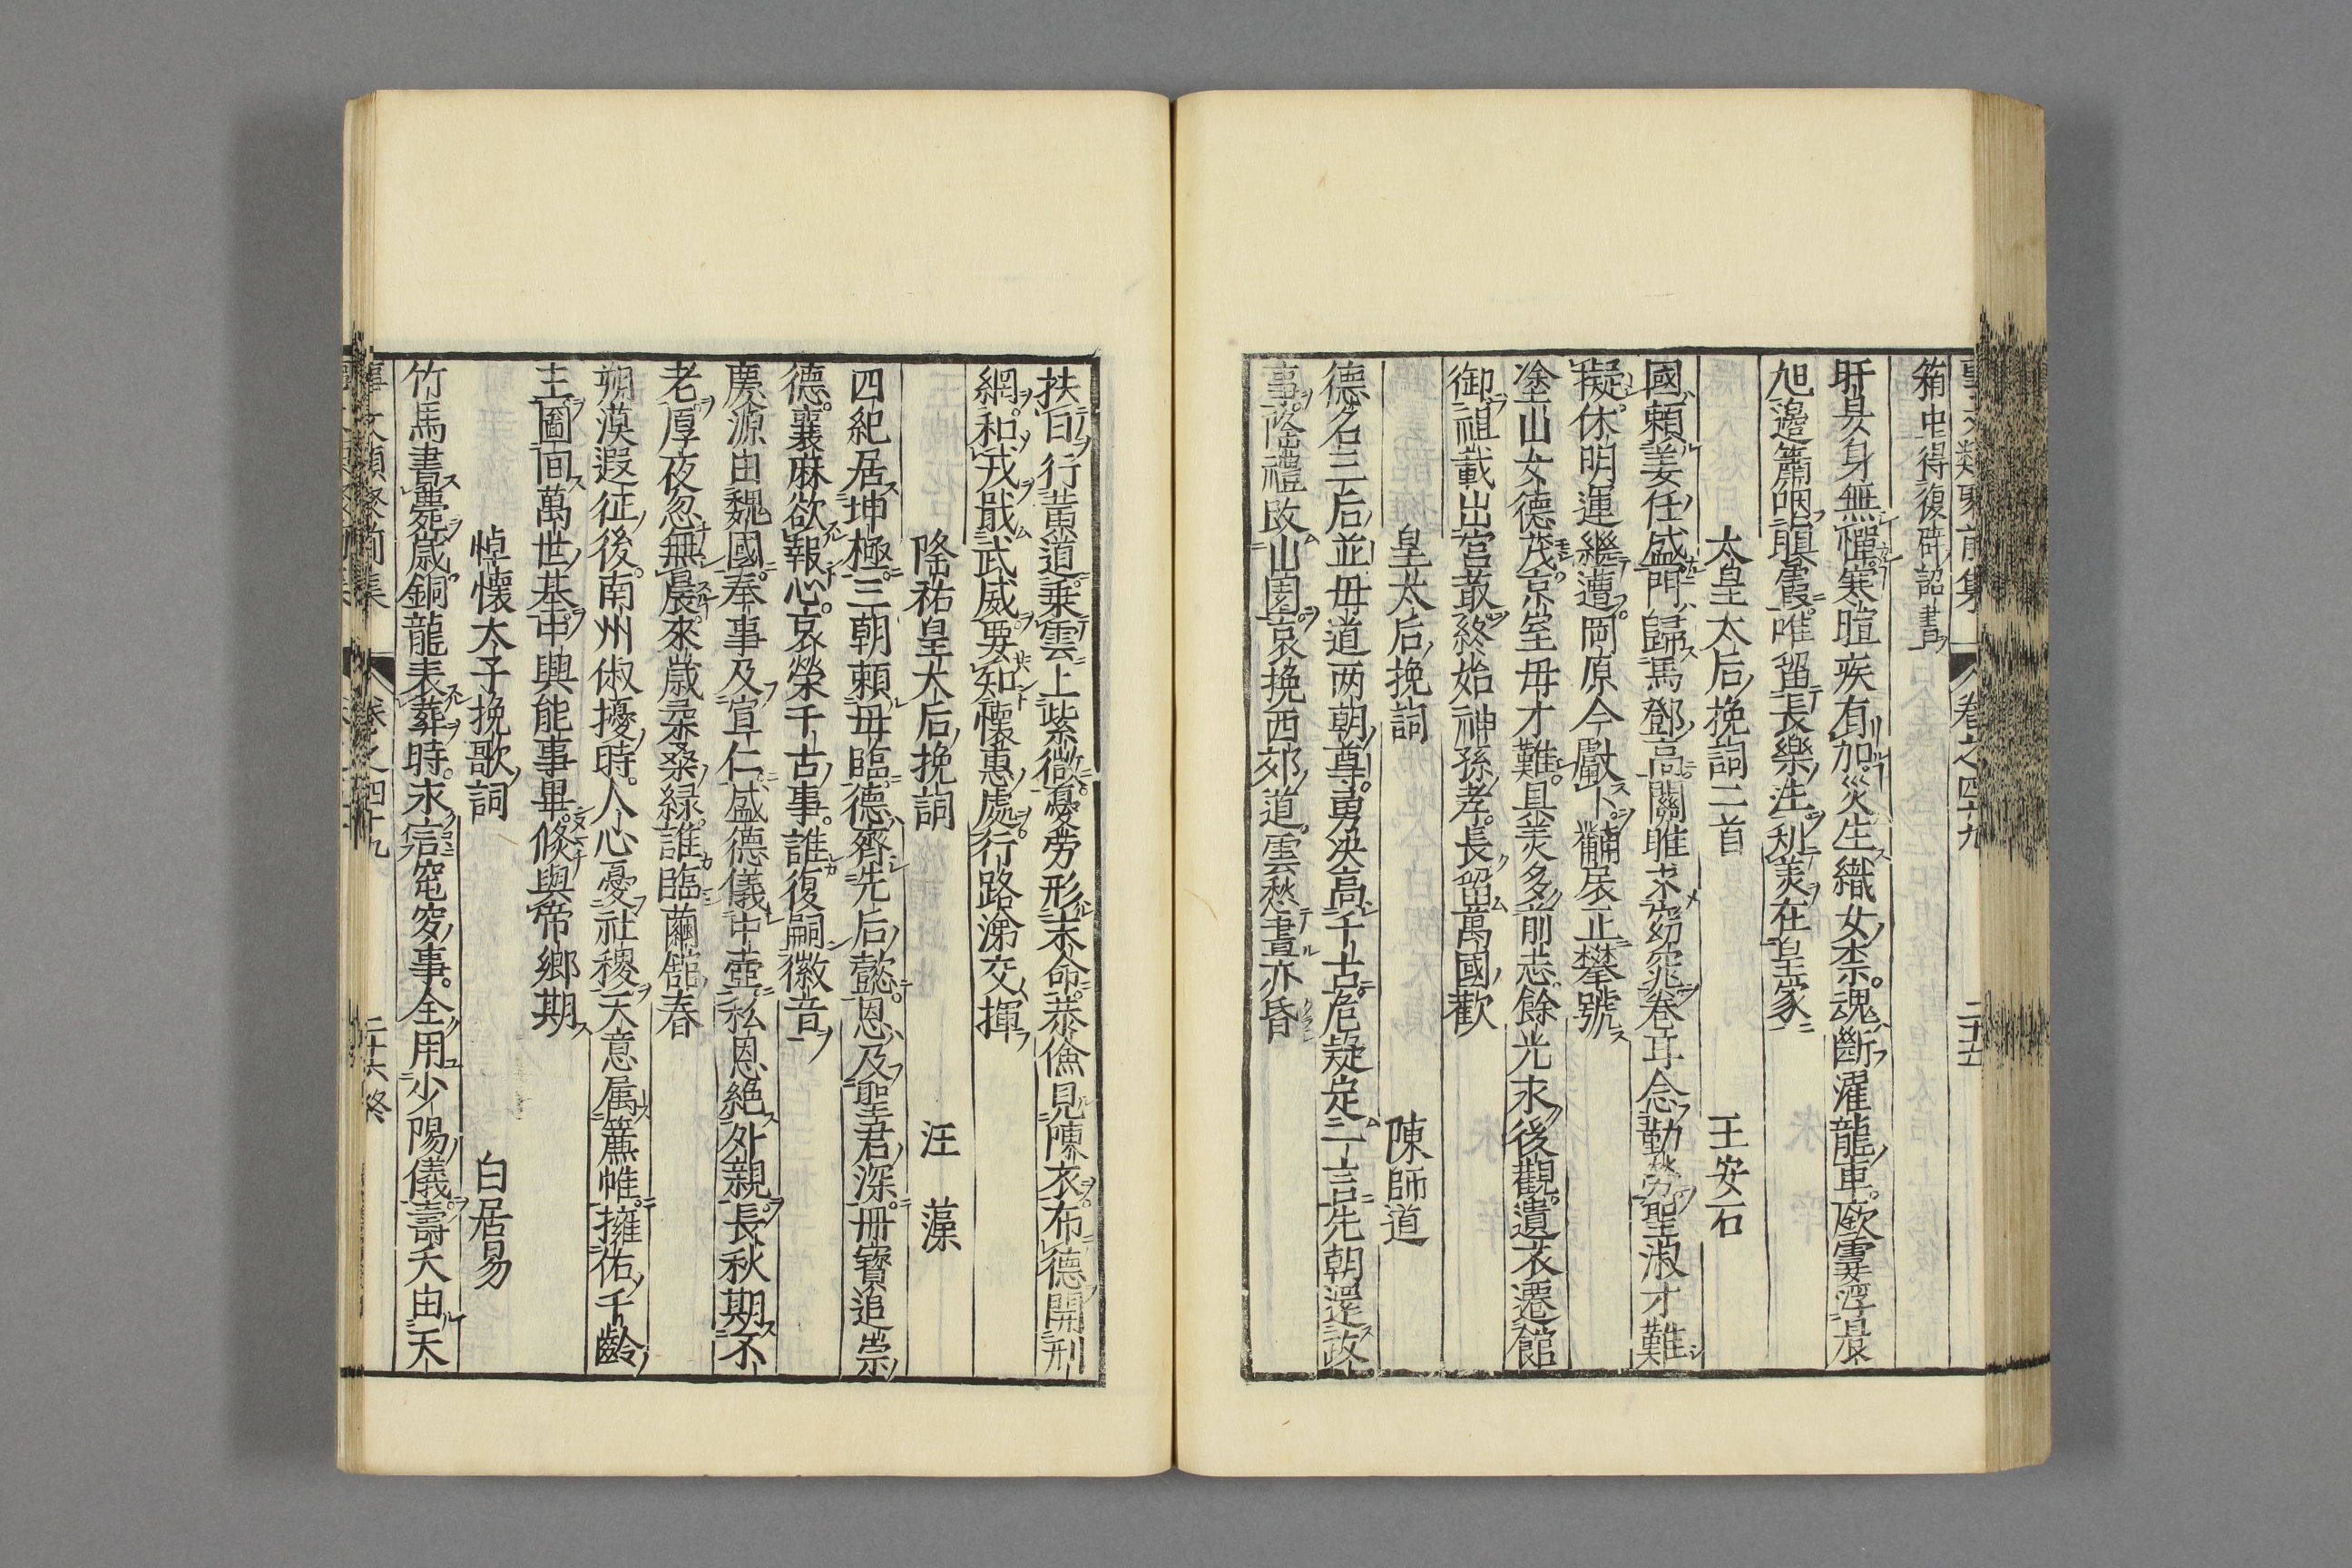 箱中得復辟詔書
旰昃身無憚寒暄疾有加災生織女柰魂斷濯龍車歛霙浮晨
旭邊簫咽暝霞唯留長樂注利美在皇家
太皇太后挽詞二首 王安石
國賴姜任盛門歸馬鄧高關雎求窈窕卷耳念勤勞聖淑才難
擬休明運繼遭岡原今獻卜黼扆正攀號
塗山女德茂京室母才難具美多前志餘光永後觀遺衣遷館
御祖載出宮菆終始神孫孝長留萬國歡
皇太后挽詞 陳師道
德名三后並母道两朝尊勇决高千古危疑定一言先朝還政
事隆禮改山園哀挽西郊道雲愁晝亦昏
扶百行黃道乗雲上紫微憂勞形末命恭儉見陳衣布德開刑
網和戎戢武威要知懷惠處行路涕交揮
隆祐皇太后挽詞 汪藻
四紀居坤極三朝賴母臨德齊先后懿恩及聖君深冊寶追崇
德䙝麻欲報心哀榮千古事誰復嗣徽音
慶源由魏國奉事及宣仁盛德儀中壼私恩絶外親長秋期不
老厚夜忽無晨來歳柔桑緑誰臨繭館春
朔漠遐征後南州俶擾時人心憂社稷天意属簾帷擁佑千齡
主圖回萬世基中興能事畢倐與帝鄉期
悼懷太子挽歌詞 白居易
竹馬書薨歳銅龍表葬時永言窀穸事全用少陽儀壽夭由天
事文類聚前集 卷之四十九 二十六終